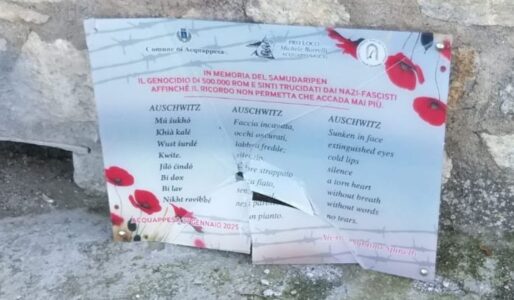 Comune di Acquappesa
PRO LOCO
IN MEMORIA DEL SAMUDARIPEN
IL GENOCIDIO DI 500.000 ROM E SINTI TRUCIDATI DAI NAZI-FASCISTI
AFFINCHÉ IL RICORDO NON PERMETTA CHE ACCADA MAI PIÙ
AUSCHWITZ
Mú šukhó
Khià kalé
Wust šurdé
Kwite.
Jiló čindó
Bi dox
Bi lav
Nikht rovibbé
AUSCHWITZ
Faccia incavata,
occhi oscurati,
labbra fredde;
silenzio.
strappato
fiato,
pianto.
AUSCHWITZ
Sunken in face
extinguished eyes
cold lips
silence
a torn heart
without breath
without words
no tears.
ACQUAPPESA GENNAIO 2025